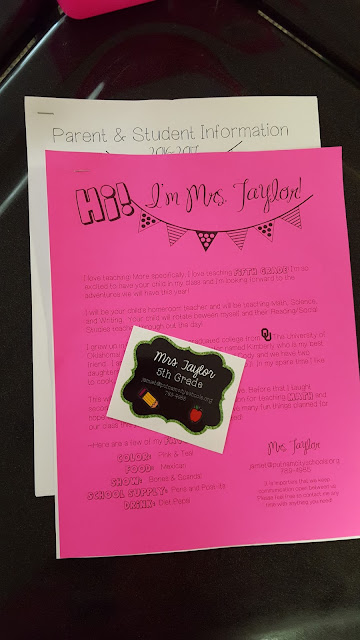 Parent & Student Information
2016-2017
Hi! I'm Mrs. Taylor!
I love teaching! More specifically, I love teaching FIFTH GRADE! I'm so
excited to have your child in my class and I'm looking forward to the
adventures we will have this year!
I will be your child's homeroom teacher and will be teaching Math, Science,
and Writing. Your child will rotate between myself and their Reading/Social
Studies teacher through out the day!
I grew up in graduated college from OU The University of
Oklahoma! named Kimberly who is my best
friend. I and we have two
daughters In my spare time I like
to cook
This year Before that I taught
for teaching MATH and
hope many fun things planned for
our class this
Mrs. Taylor
5th Grade
789-4985
~Here are a few of my
COLOR: Pink & Teal
FOOD: Mexican
SHOW: Bones & Scandal
SCHOOL SUPPLY: Pens and Post-its
DRINK: Diet Pepsi
Mrs. Taylor
789-4985
It is important that we keep
communication open between us.
Please feel free to contact me any
time with anything you need!